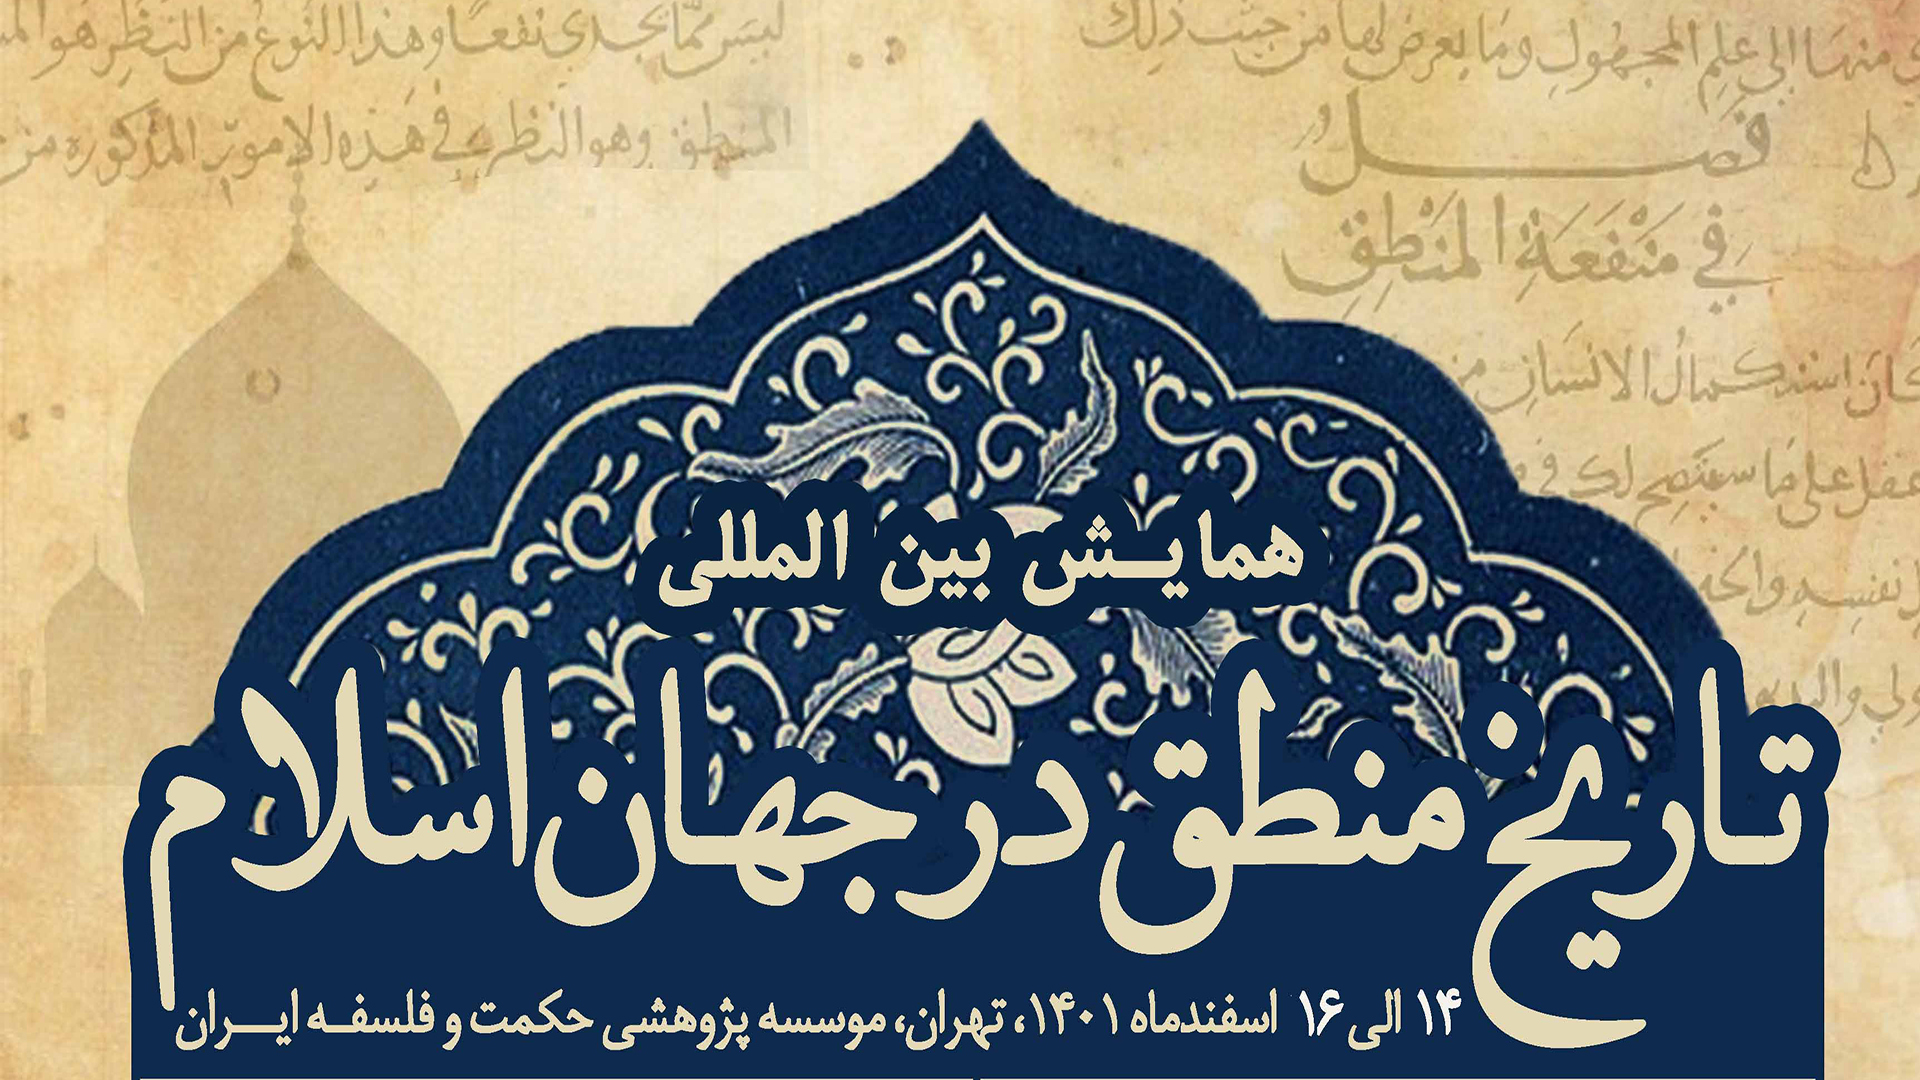 ليس مما يجدي نفعا وهذا النوع من النظر هو
المنطق وهو النظر في هذه الامور المذكورة من
منها الى علم المجهول وما يعرض لها من حيث ذلك
فصل
في منفعة المنطق
استكمال الانسان
على ما سيتضح لك في
همایش بین المللی
تاریخ منطق در جهان اسلام
۱۴ الی ۱۶ اسفندماه ۱۴۰۱، تهران، موسسه پژوهشی حکمت و فلسفه ایران